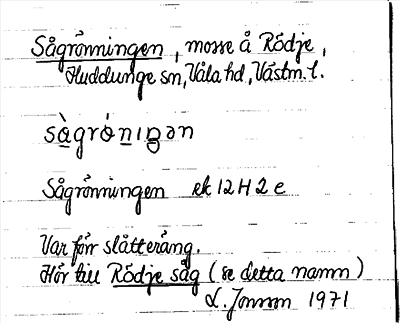 Sågrönningen, mosse å Rödje,
Huddunge sn, Våla hd, Västm. l.
sàgrǿnıŋən
Sågrönningen ek 12H2e
Var förr slåtteräng.
Hör till Rödje såg (se detta namn)
L. Jonson 1971